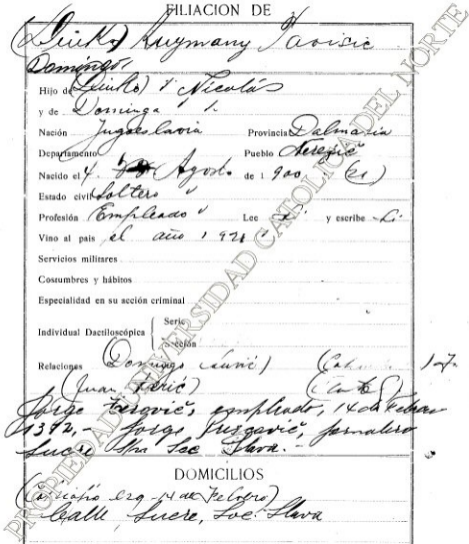 FILIACION DE
(Dinko)
Domingo
Hijo de (Dinko) " Nicolás
y de Dominga "
Nación Jugoeslavia Provincia Dalmacia
Departamento Pueblo Nerezič
Nacido el 4 Agosto de 1900 (21)
Estado civil Soltero "
Profesión Empleado " Lee y escribe
Vino al país el año 1921 "
Servicios militares
Costumbres y hábitos
Especialidad en su acción criminal
Individual Dactiloscópica
Serie
Sección
Relaciones (Domingo
(Juan
Jorge empleado, 14 de Febrero
1372,- Jorge jornalero
Sucre Soc Slava.-
DOMICILIOS
14 de Febrero)
Calle Sucre, Soc. Slava
PROPIEDAD UNIVERSIDAD CATOLICA DEL NORTE